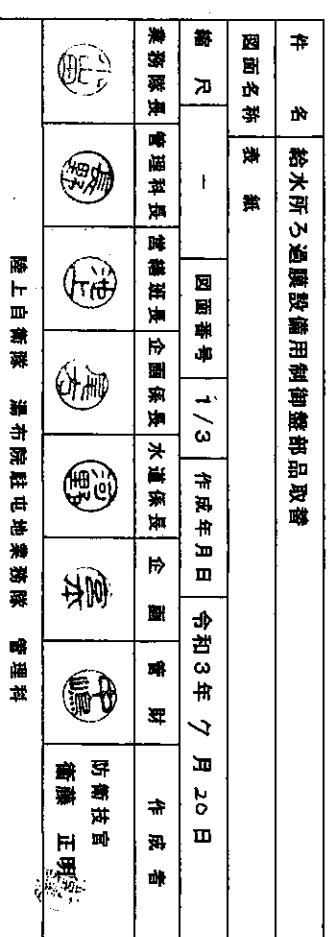 件 名 給水所ろ過膜設備用制御盤部品取替
図面名称 表 紙
縮 尺 － 図面番号 1/3 作成年月日 令和3年 7月 20日
業務隊長 管理科長 営繕班長 企画係長 水道係長 企 画 管 財 作 成 者
池上 尾方 河野 宮本 中嶋 防衛技官
衞藤 正明
陸上自衛隊 湯布院駐屯地業務隊 管理科